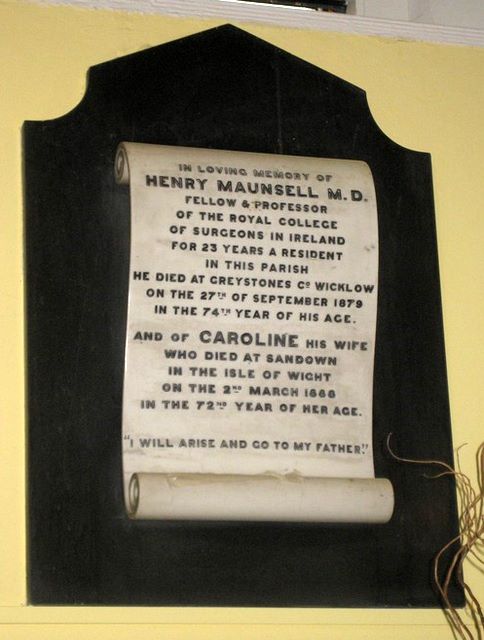 IN LOVING MEMORY OF
HENRY MAUNSELL M.D.
FELLOW & PROFESSOR
OF THE ROYAL COLLEGE
OF SURGEONS IN IRELAND
FOR 23 YEARS A RESIDENT
IN THIS PARISH
HE DIED AT GREYSTONES Cº WICKLOW
ON THE 27TH OF SEPTEMBER 1879
IN THE 74TH YEAR OF HIS AGE.
AND OF CAROLINE HIS WIFE
WHO DIED AT SANDOWN
IN THE ISLE OF WIGHT
ON THE 2ND MARCH 1888
IN THE 72ND YEAR OF HER AGE.
"I WILL ARISE AND GO TO MY FATHER."